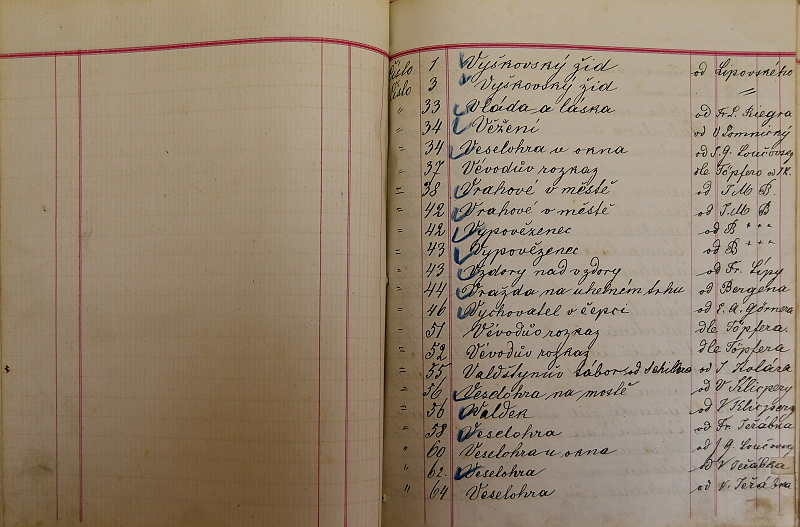 Číslo 1 Vyškovský žid od Lipovského
Číslo 3 Vyškovský žid "
" 33 Vláda a láska od Fr. L. Riegra
" 34 Vězení od V Lomnický
" 34 Veselohra u okna od J. G. Loučovský
" 37 Vévodův rozkaz dle Töpfera od
" 38 Vrahové v městě od J. M B.
" 42 Vrahové v městě od J. M B
" 42 Vypovězenec od B * * *
" 43 Vypovězenec od B * * *
" 43 Vzdory nad vzdory od Fr. Lípy
" 44 Vražda na uhelném trhu od Bergena
" 46 Vychovatel v čepci od E. A. Görnera
" 51 Vévodův rozkaz dle Töpfera.
" 52 Vévodův rozkaz dle Töpfera
" 55 Valdštýnův tábor od Schillera od J Kolára
" 56 Veselohra na mostě od V Klicpery
" 56 Valdek od V Klicpery
" 58 Veselohra od Fr. Jeřábka
" 60 Veselohra u okna od J G. Loučovský
" 62. Veselohra od V Jeřábka
" 64 Veselohra od V. Jeřábka